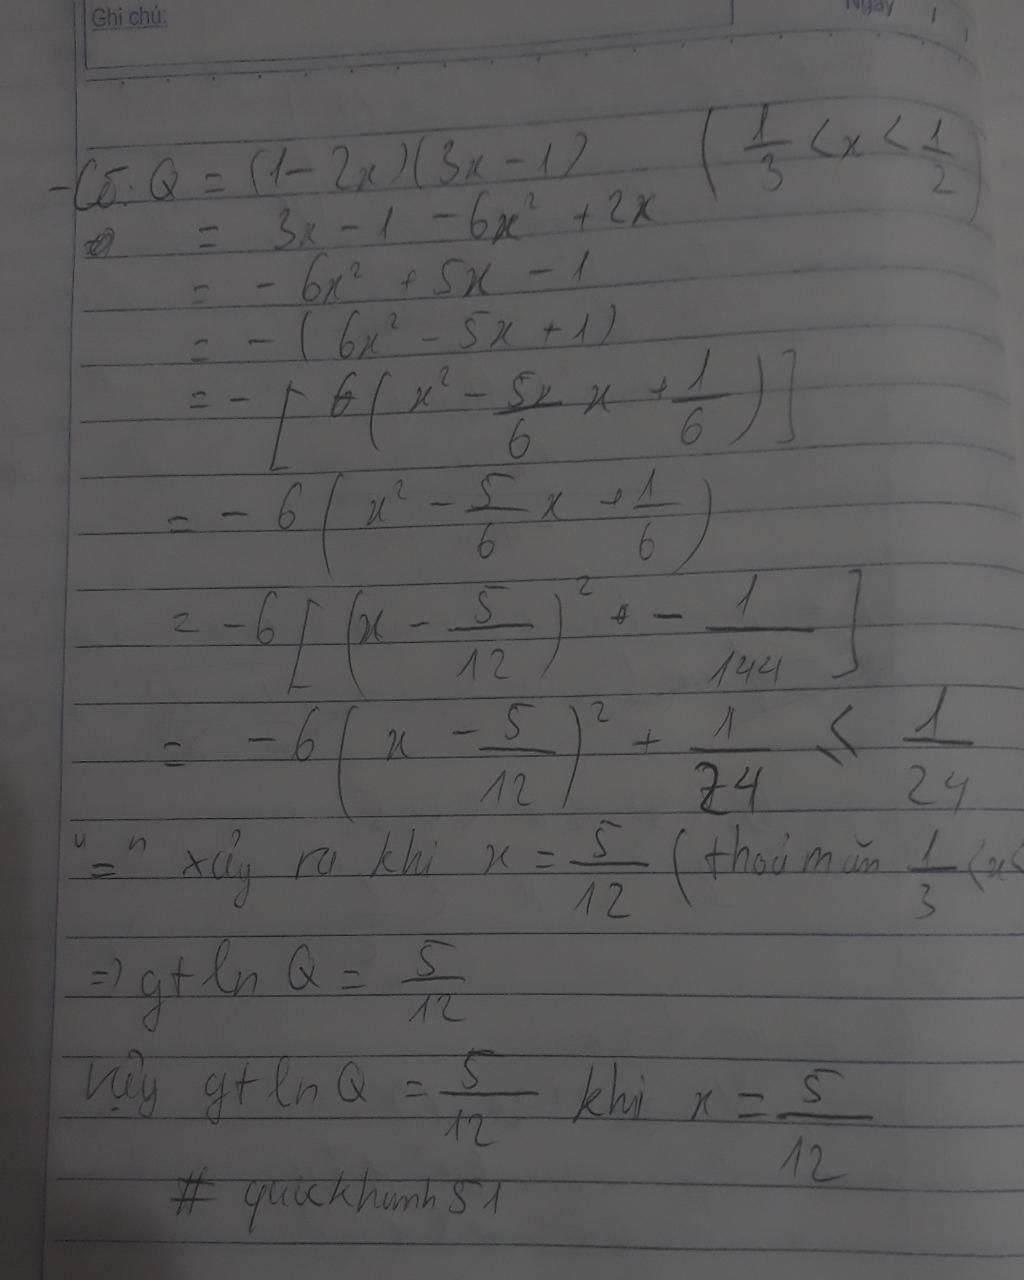 Ghi chú:
Ngày
- Có: Q = (1 - 2x)(3x - 1) (1/3 < x < 1/2)
= 3x - 1 - 6x² + 2x
= - 6x² + 5x - 1
= - (6x² - 5x + 1)
= - [6(x² - 5x/6 x + 1/6)]
= - 6(x² - 5/6 x + 1/6)
= -6[(x - 5/12)² - 1/144]
= -6(x - 5/12)² + 1/24 ≤ 1/24
"=" xảy ra khi x = 5/12 (thoả mãn 1/3 < x <
=> gtln Q = 5/12
Vậy gtln Q = 5/12 khi x = 5/12